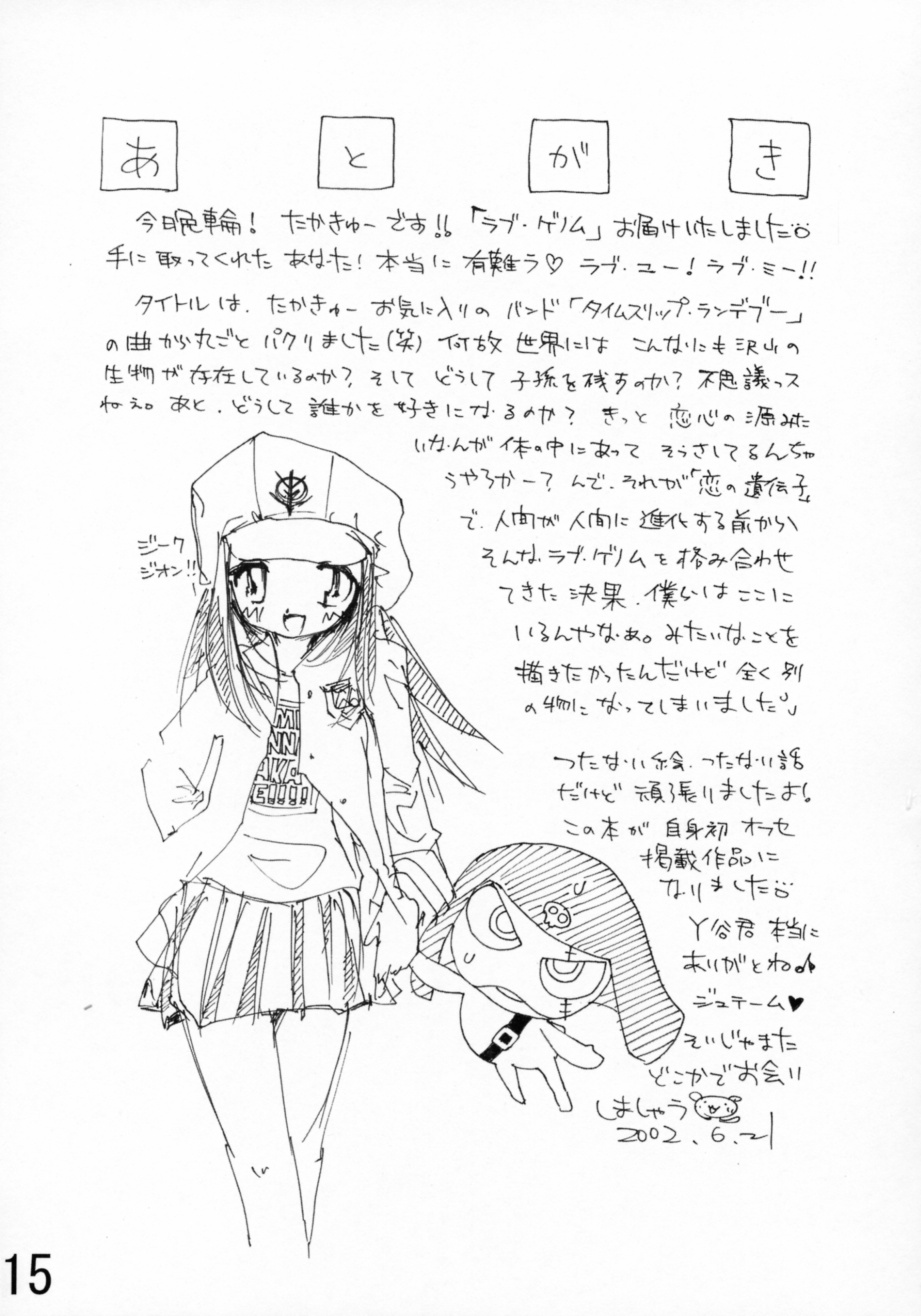 あとがき
今日色輪! たかきゅーです!!「ラブ・ゲノム」お届けいたしました
手に取ってくれた あなた!本当に有難ラ♡ ラブ・ユー!ラブ・ミー!!
タイトルは、たかきゅー お気に入りの バンド「タイムスリップ・ランデブー」
の曲から丸ごと パクリました(笑) 何故 世界には こんなにも沢山の
生物が存在しているのか?そして どうして 子孫を残すのか?不思議っス
ねぇ。あと、どうして 誰かを好きになるのか? きっと 恋心の源みた
いなんが 体の中にあって そうさしてるんちゃ
うやろかー?んで、それが「恋の遺伝子」
で、人間が人間に進化する前から
そんな ラブ・ゲノムを 絡み合わせ
てきた 決果、僕らは ここに
いるんやなぁ。みたいなことを
描きたかったんだけど 全く別
の物に なってしまいました。
ジーク
ジオン!!
MI
NN
AKA
E!!!!
つたない絵、つたない話
だけど 頑張りましたよ!
この本が 自身初 オフセ
掲載作品に
なりました
丫谷君 本当に
ありがとね♪
ジュテーム♥
そいじゃまた
どこかでお会い
しましゃう
2002.6.21
15